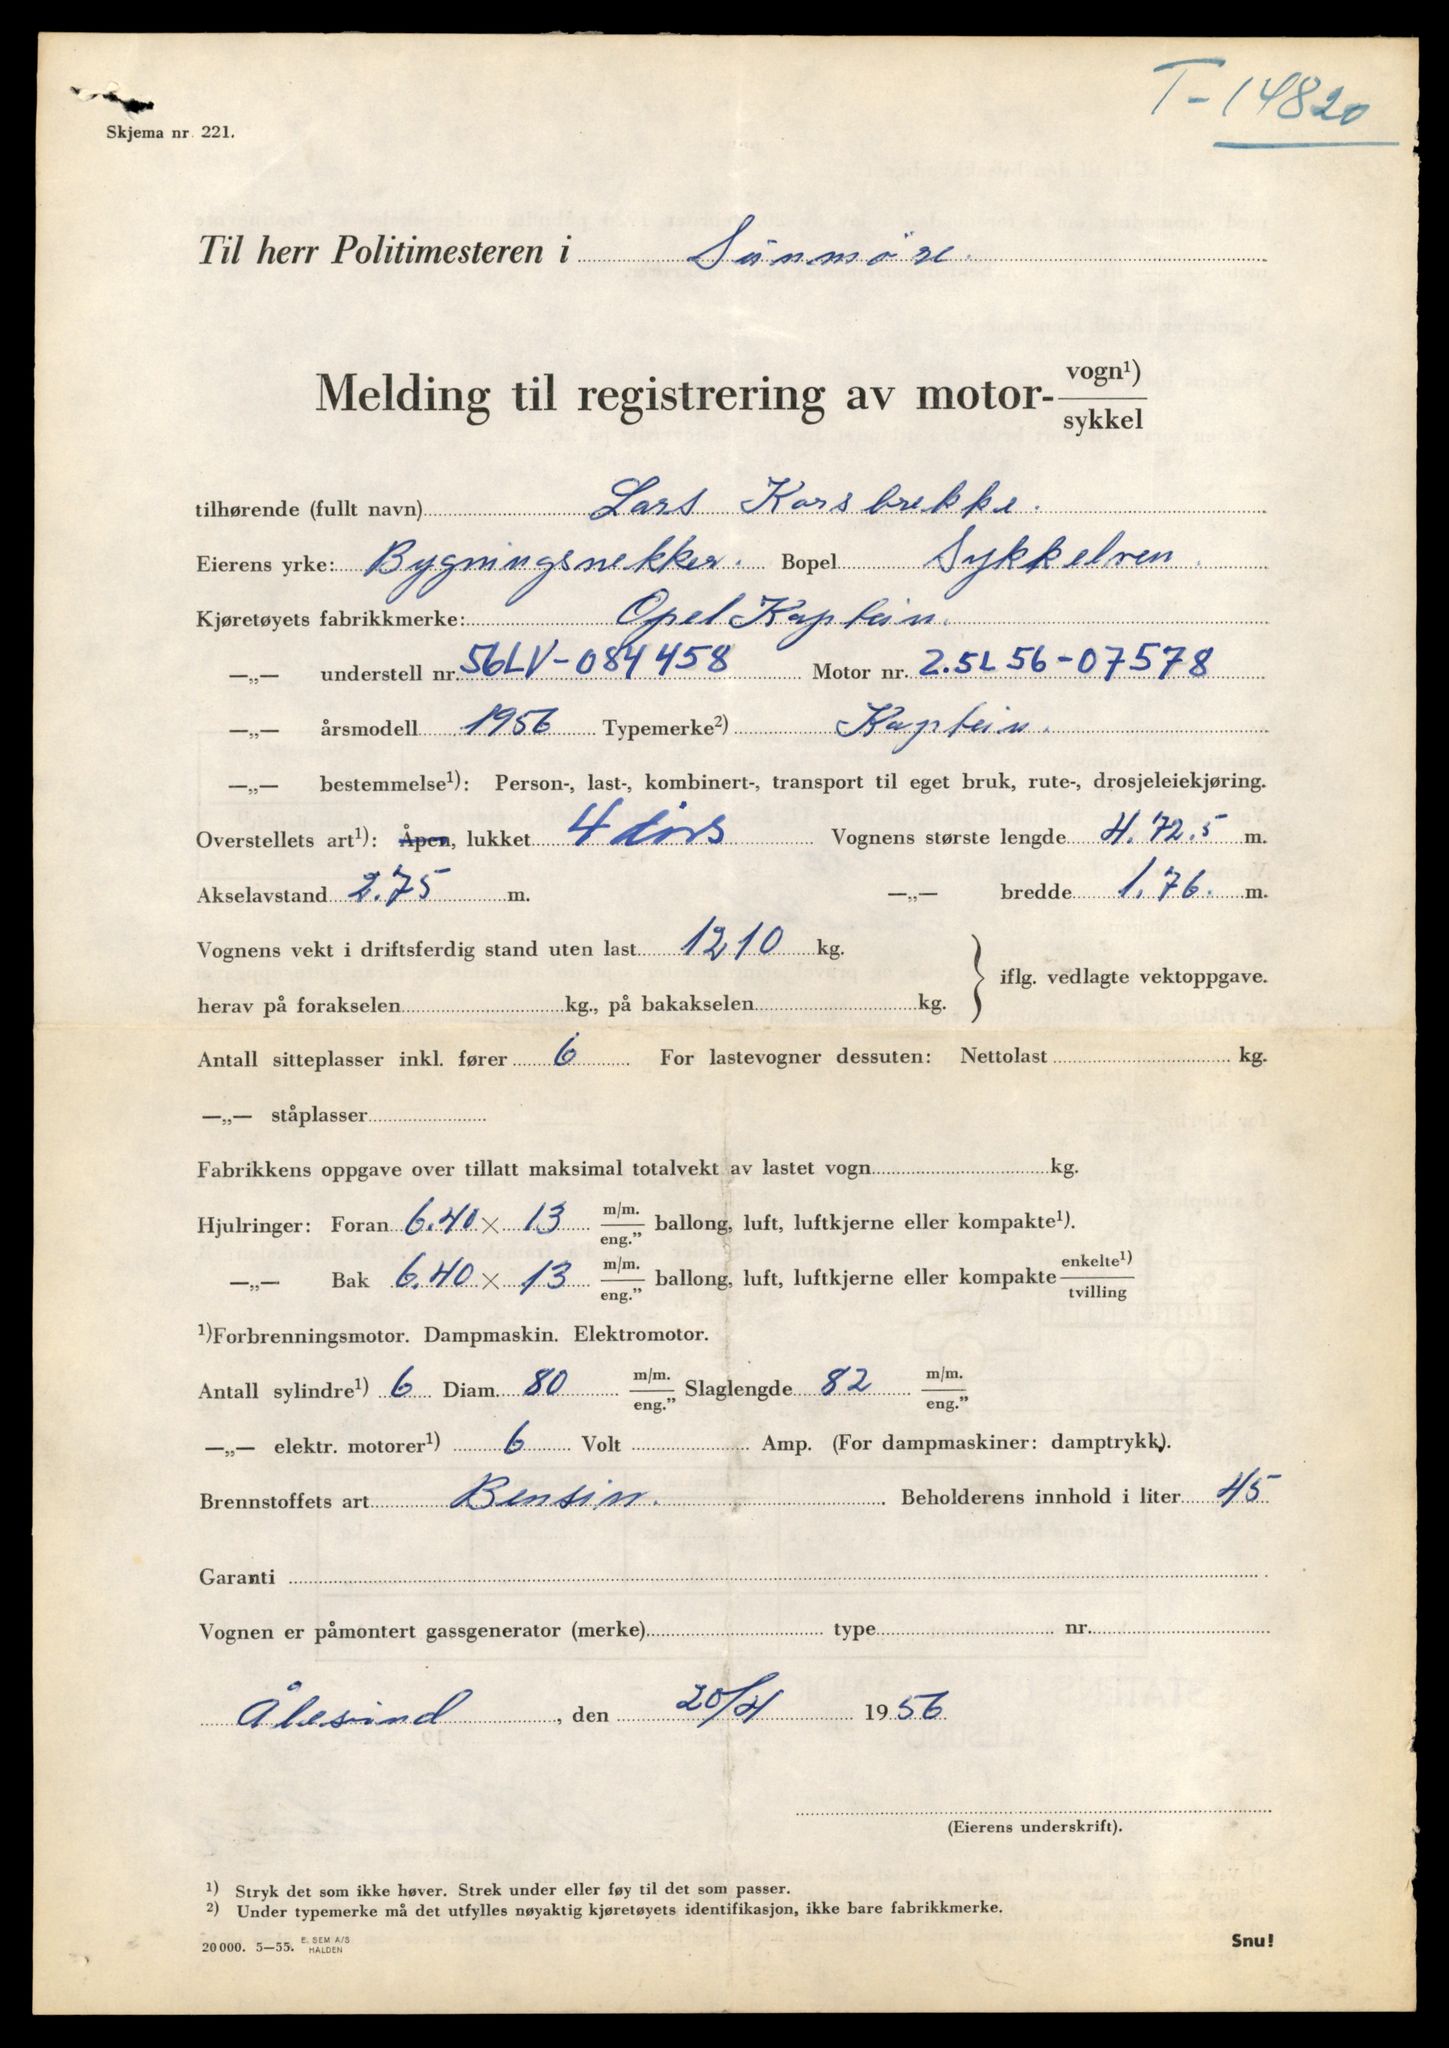 T-14820
Skjema nr. 221.
Til herr Politimesteren i Sunnmöre.
Melding til registrering av motor- vogn¹) / sykkel
tilhørende (fullt navn) Lars Korsbrekke.
Eierens yrke: Bygningsnekker. Bopel Sykkelven.
Kjøretøyets fabrikkmerke: Opel Kaptein.
—„— understell nr. 56LV-084458 Motor nr. 2.5L 56-07578
—„— årsmodell 1956 Typemerke²) Kaptein.
—„— bestemmelse¹): Person-, last-, kombinert-, transport til eget bruk, rute-, drosjeleiekjøring.
Overstellets art¹): Åpen, lukket 4 dörs Vognens største lengde 4.72.5 m.
Akselavstand 2.75 m. —„— bredde 1.76. m.
Vognens vekt i driftsferdig stand uten last 1210 kg.
herav på forakselen kg., på bakakselen kg. } iflg. vedlagte vektoppgave.
Antall sitteplasser inkl. fører 6 For lastevogner dessuten: Nettolast kg.
—„— ståplasser
Fabrikkens oppgave over tillatt maksimal totalvekt av lastet vogn kg.
Hjulringer: Foran 6.40 × 13 m/m. / eng.” ballong, luft, luftkjerne eller kompakte¹).
—„— Bak 6.40 × 13 m/m. / eng.” ballong, luft, luftkjerne eller kompakte enkelte¹) / tvilling
¹)Forbrenningsmotor. Dampmaskin. Elektromotor.
Antall sylindre¹) 6 Diam. 80 m/m. / eng.” Slaglengde 82 m/m. / eng.”
—„— elektr. motorer¹) 6 Volt Amp. (For dampmaskiner: damptrykk).
Brennstoffets art Bensin. Beholderens innhold i liter 45
Garanti
Vognen er påmontert gassgenerator (merke) type nr.
Ålesund, den 20/4 1956
(Eierens underskrift).
¹) Stryk det som ikke høver. Strek under eller føy til det som passer.
²) Under typemerke må det utfylles nøyaktig kjøretøyets identifikasjon, ikke bare fabrikkmerke.
20 000. 5—55. E. SEM A/S HALDEN
Snu!